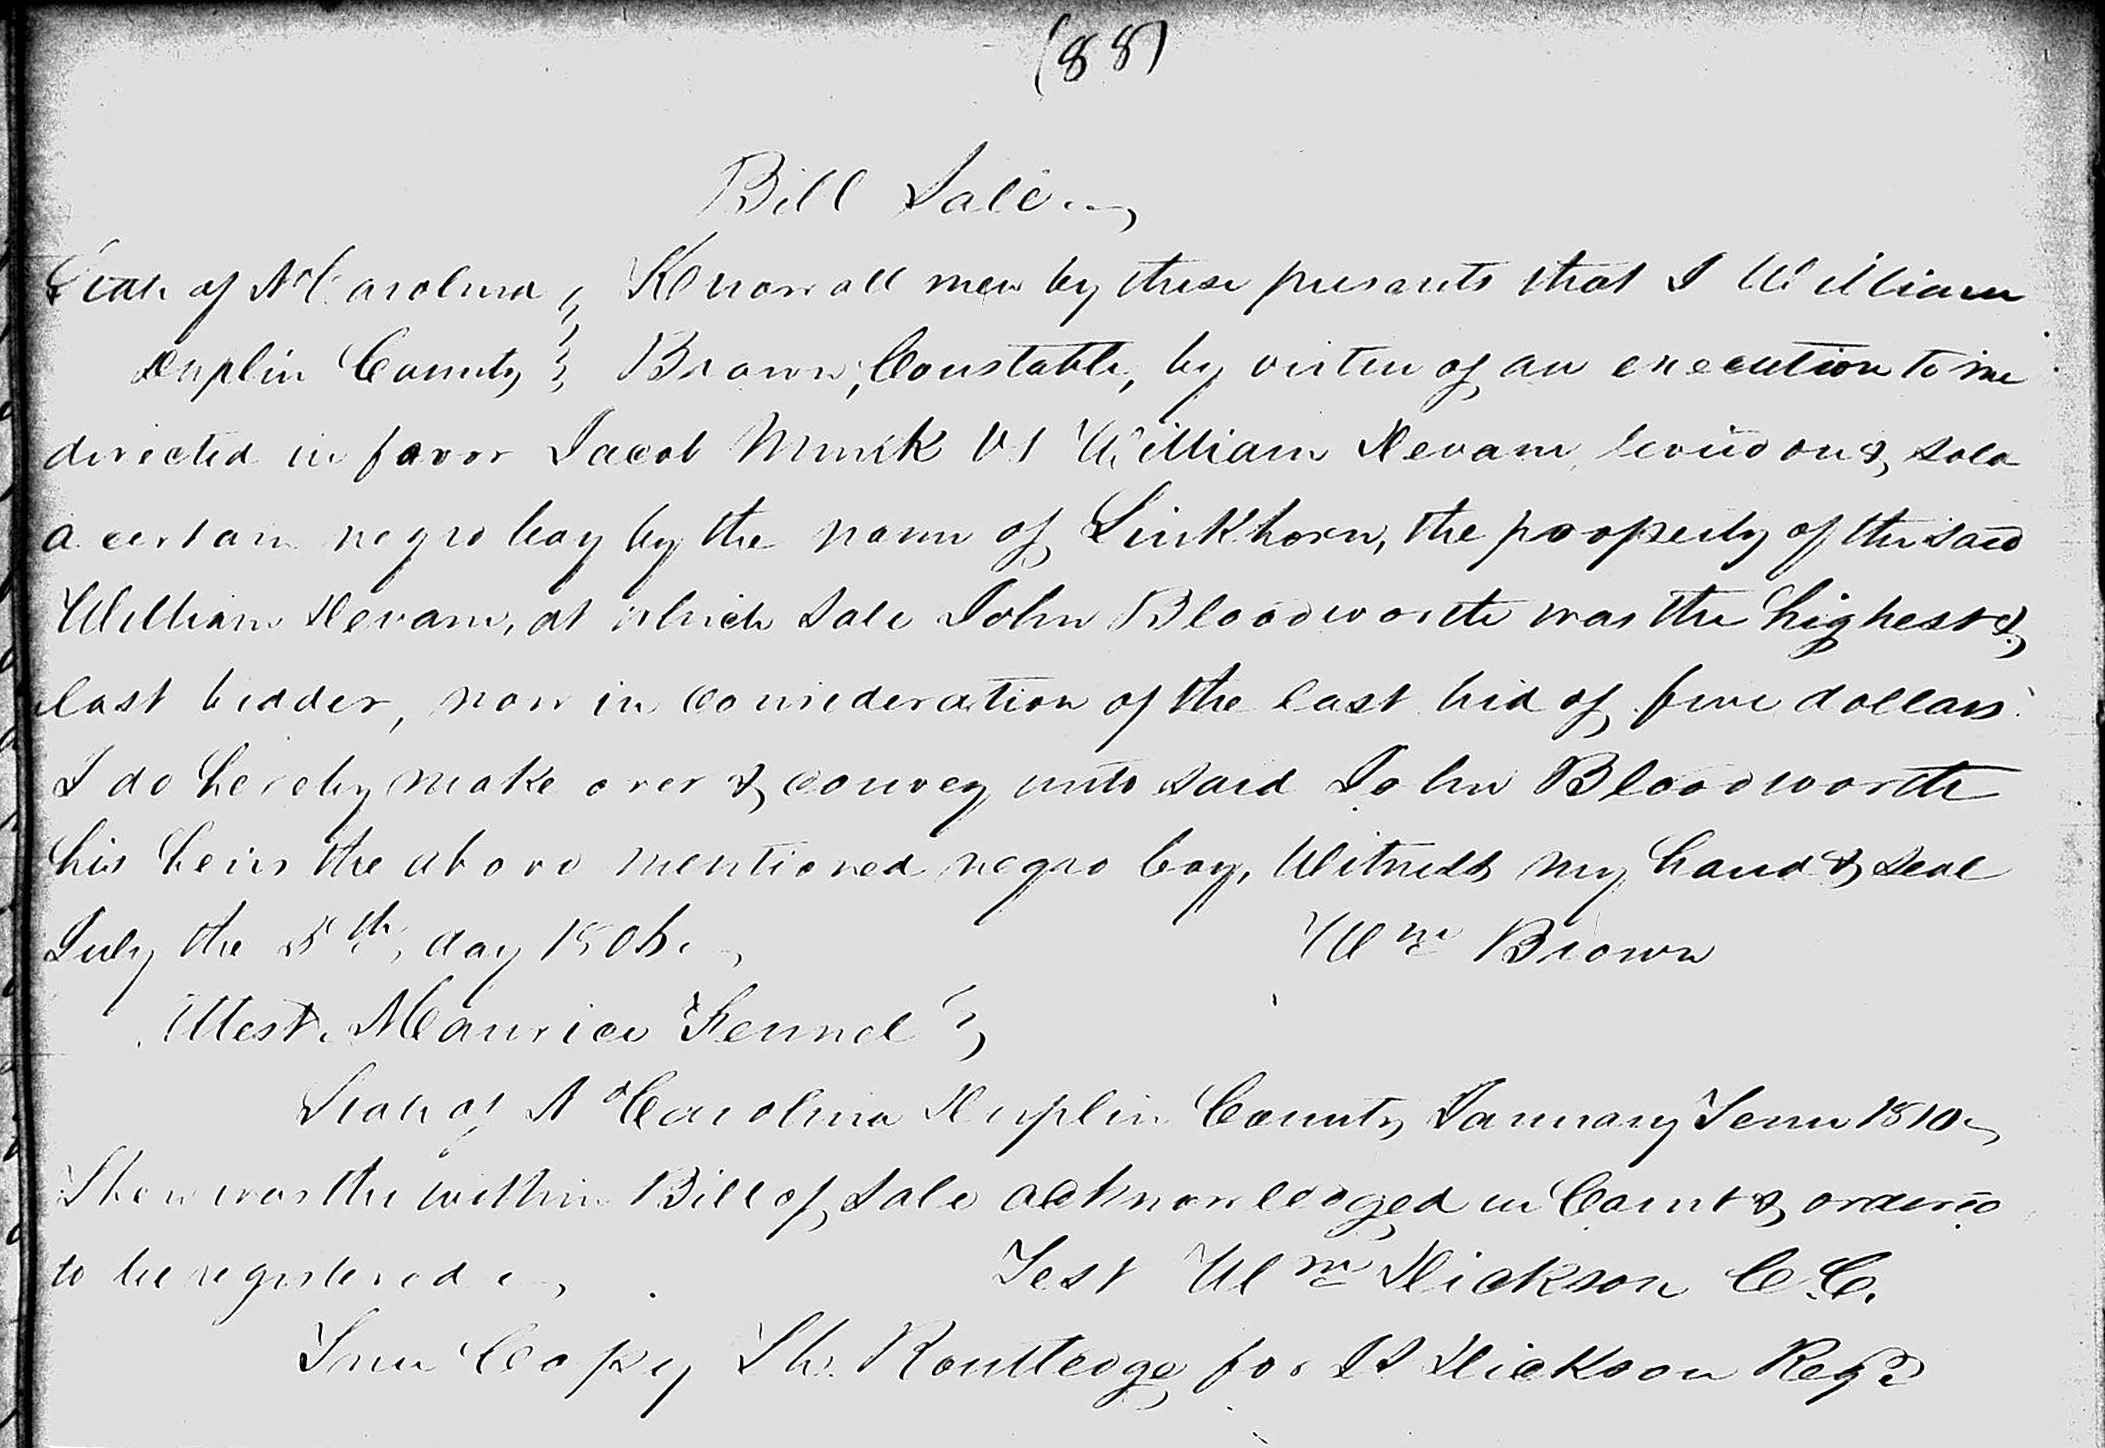 (88)
Bill Sale
State of No Carolina } Know all men by these presents that I William
Duplin County } Brown, Constable, by virtue of an execution to me
directed in favor Jacob Munk Vs William Devam levied on & sold
a certain negro boy by the name of Linkhorn, the property of the said
William Devam, at which sale John Bloodworth was the highest &
last bidder, now in consideration of the last bid of five dollars
I do hereby make over & convey unto said John Bloodworth
his heirs the above mentioned negro boy, Witness my hand & seal
July the 5th, day 180 Wm Brown
Attest. Maurice Fennel
State of No Carolina Duplin County January Term 1810
Then was the within Bill of Sale acknowledged in Court & ordered
to be registered Test Wm Dickson C.C.
True Copy Th. Routledge for Dickson Regr